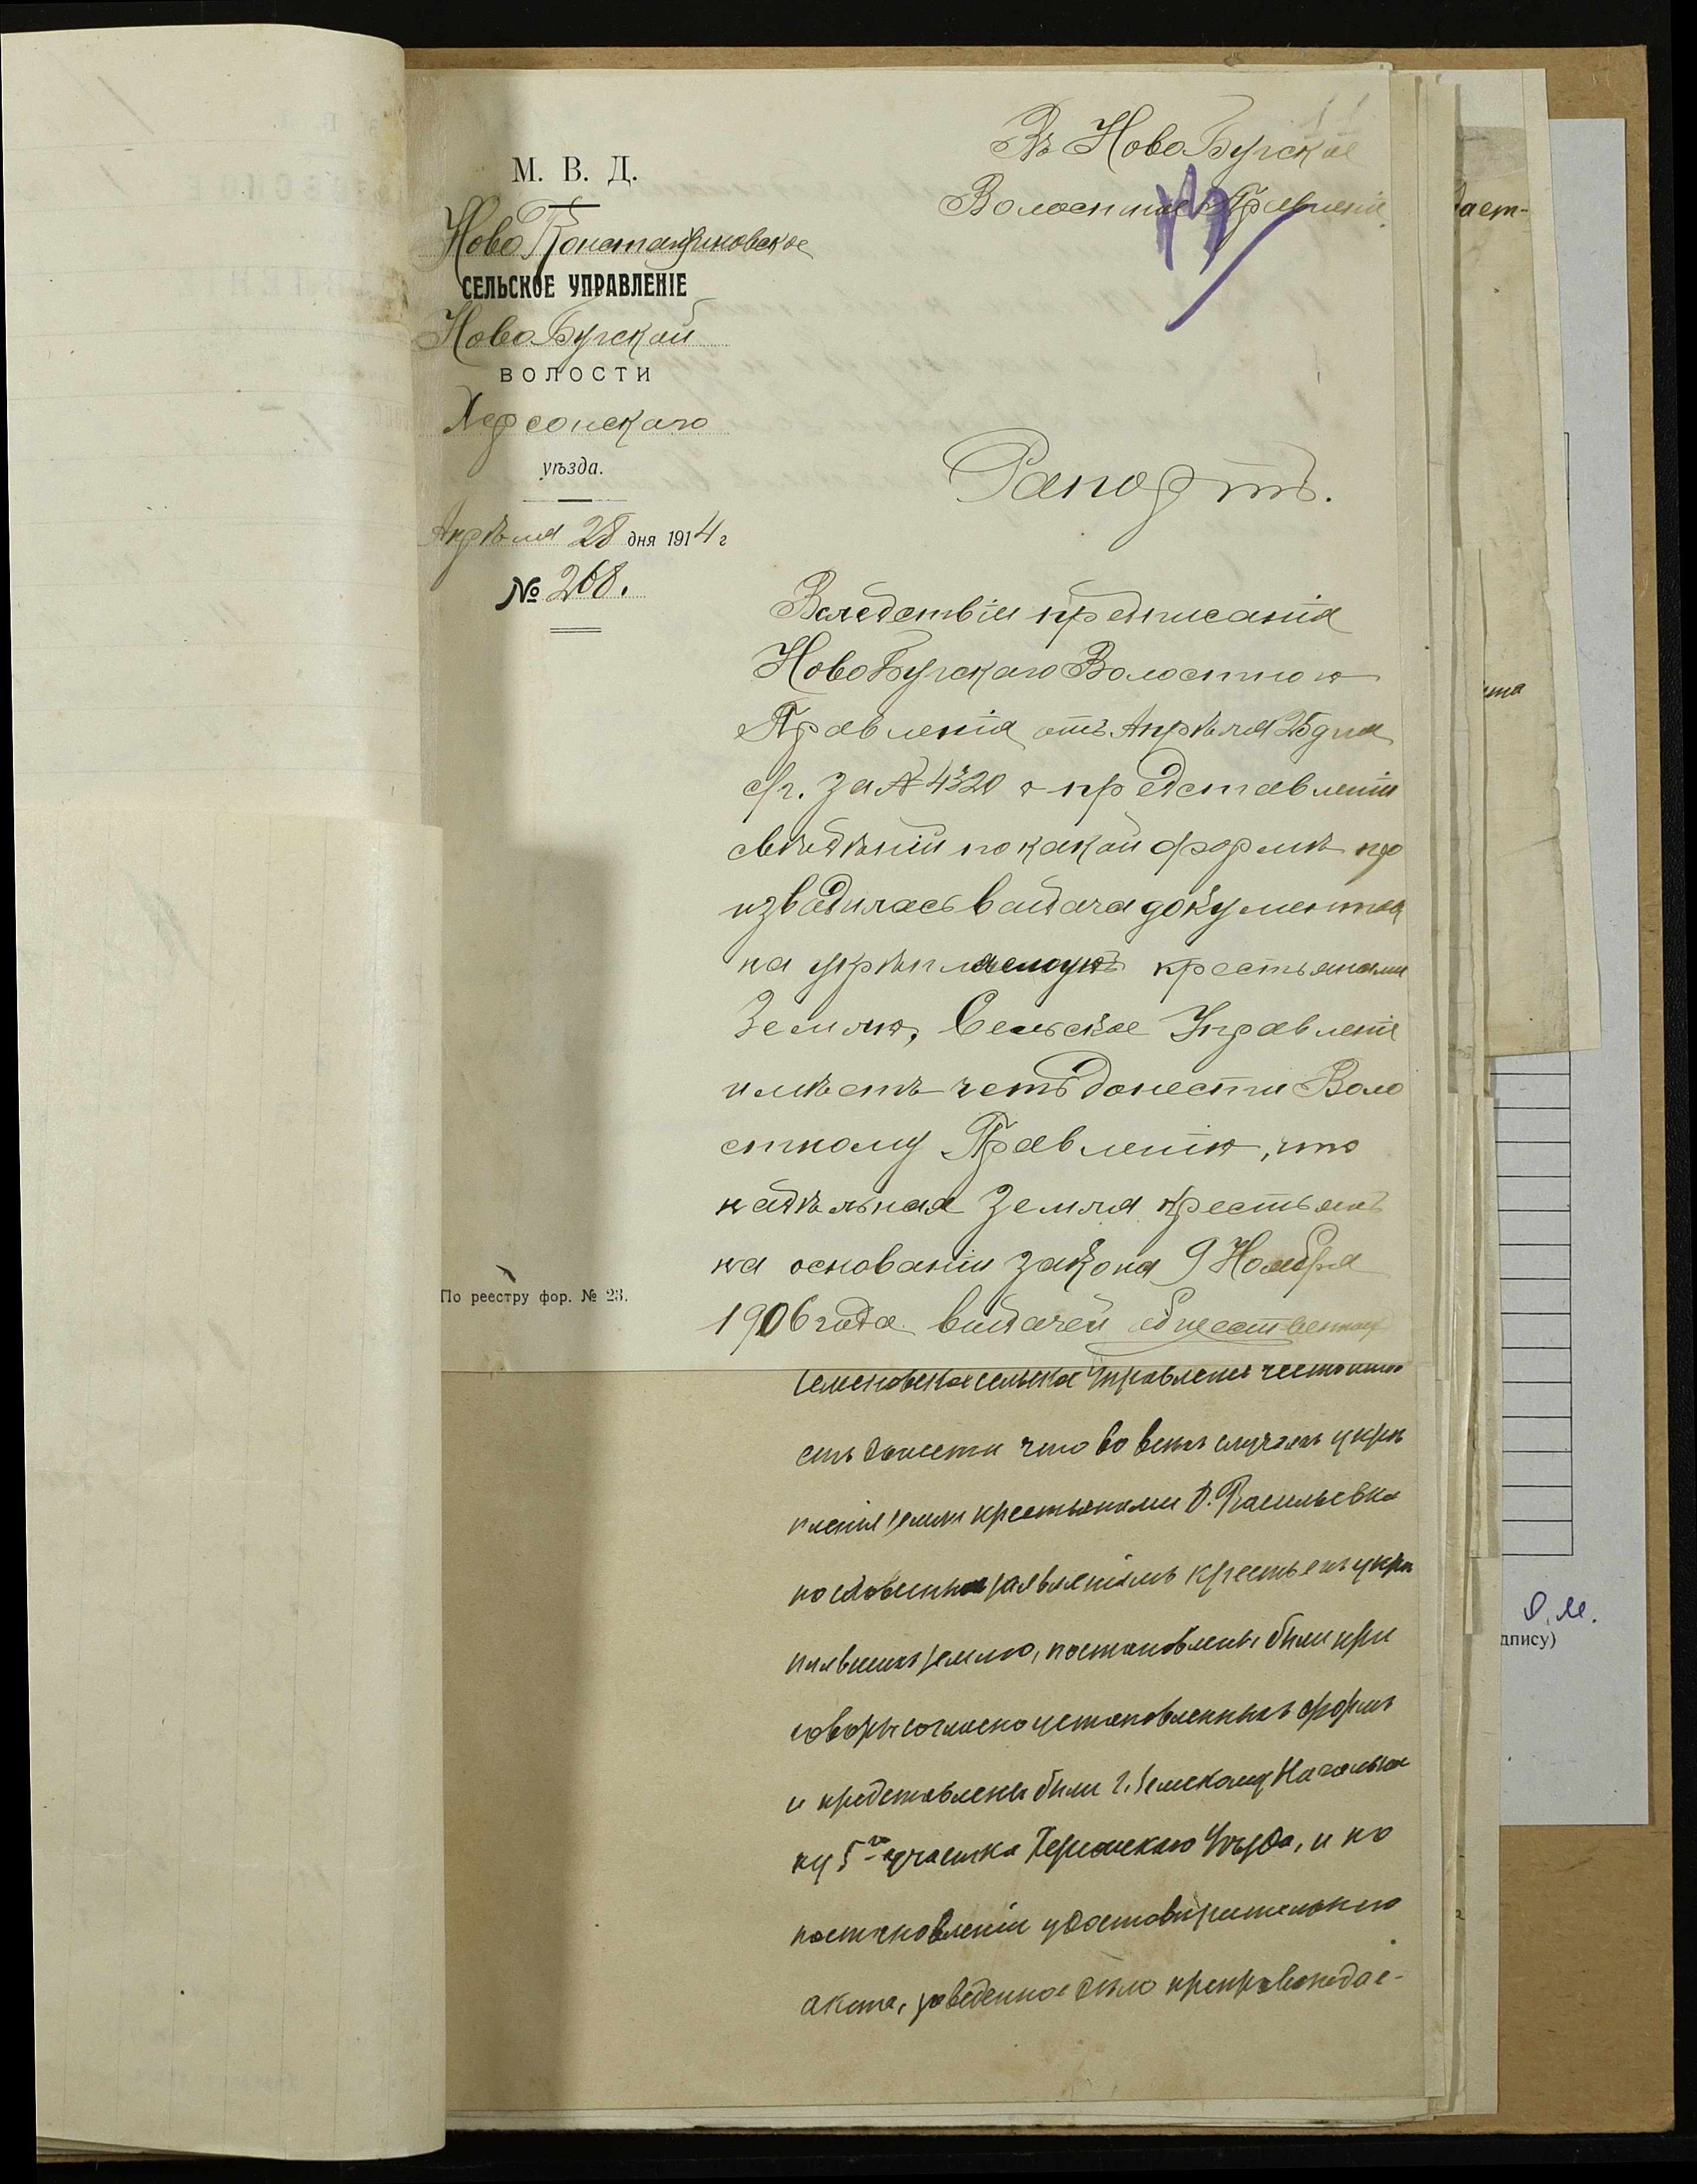 М. В. Д.
Ново Константиновское
СЕЛЬСКОЕ УПРАВЛЕНІЕ
Ново Бугской
ВОЛОСТИ
Херсонскаго
уѣзда.
Апрѣля 28 дня 1914 г
№ 268.
Въ Ново Бугское
Волостное Правленіе
Рапортъ.
Вследствіи предписанія
Ново Бугскаго Волостного
Правленія отъ Апрѣля 25 дня
с/г. за № 4320 о представленіи
свѣдѣній по какой формѣ про
изводилась выдача документа
на укрѣпляемую крестьянами
Землю, Сельское Управленіе
имѣетъ честь донести Воло
стному Правленію, что
надѣльная Земля крестьянъ
на основаніи закона 9 Ноября
1906 года выдачей общественных
По реестру фор. № 23.
Семеновское сельское Управленіе честь имѣ
етъ донести что во всехъ случаяхъ укрѣ
пленія земли крестьянами д. Васильевка
по словеснымъ заявленіямъ крестьянъ укрѣ
пившихъ землю, постановлены были при
говоры согласно установленныхъ формъ
и представлены были г. Земскому Начальни
ку 5го участка Херсонскаго Уѣзда, и по
постановленіи удостовѣрительнаго
акта, заведенное дѣло препровождае-
даст-
ита
дпису)